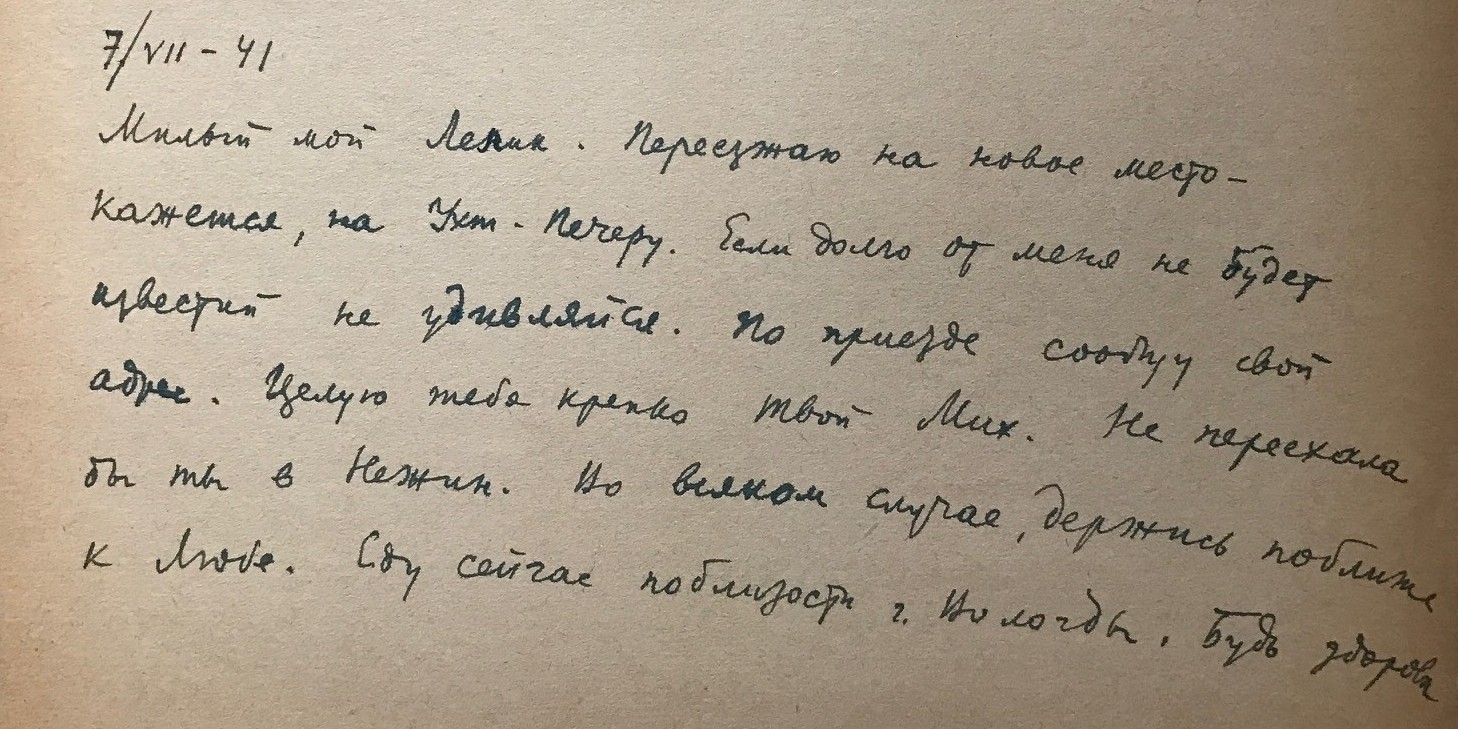 7/VII - 41
Милый мой Леник. Переезжаю на новое место -
кажется, на Ухт-Печеру. Если долго от меня не будет
известий не удивляйся. По приезде сообщу свой
адрес. Целую тебя крепко твой Мих. Не переехала
бы ты в Нежин. Во всяком случае, держись поближе
к Любе. Еду сейчас поблизости г. Вологды. Будь здорова